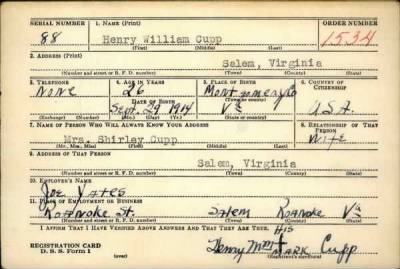 SERIAL NUMBER 1. NAME (Print) ORDER NUMBER
88 Henry William Cupp 1534
(First) (Middle) (Last)
2. ADDRESS (Print)
Salem, Virginia
(Number and street or R. F. D. number) (Town) (County) (State)
3. TELEPHONE 4. AGE IN YEARS 5. PLACE OF BIRTH 6. COUNTRY OF CITIZENSHIP
None 26
DATE OF BIRTH (Town or county)
Sept. 29 1914 Va U.S.A.
(Exchange) (Number) (Mo.) (Day) (Yr.) (State or country)
7. NAME OF PERSON WHO WILL ALWAYS KNOW YOUR ADDRESS 8. RELATIONSHIP OF THAT PERSON
Mrs. Shirley Cupp Wife
(Mr., Mrs., Miss) (First) (Middle) (Last)
9. ADDRESS OF THAT PERSON
Salem, Virginia
(Number and street or R. F. D. number) (Town) (County) (State)
10. EMPLOYER'S NAME
Joe Yates
11. PLACE OF EMPLOYMENT OR BUSINESS
Roanoke St. Salem Roanoke Va
(Number and street or R. F. D. number) (Town) (County) (State)
I AFFIRM THAT I HAVE VERIFIED ABOVE ANSWERS AND THAT THEY ARE TRUE.
His
REGISTRATION CARD Henry Mark Cupp
D. S. S. Form 1 (over) (Registrant's signature)